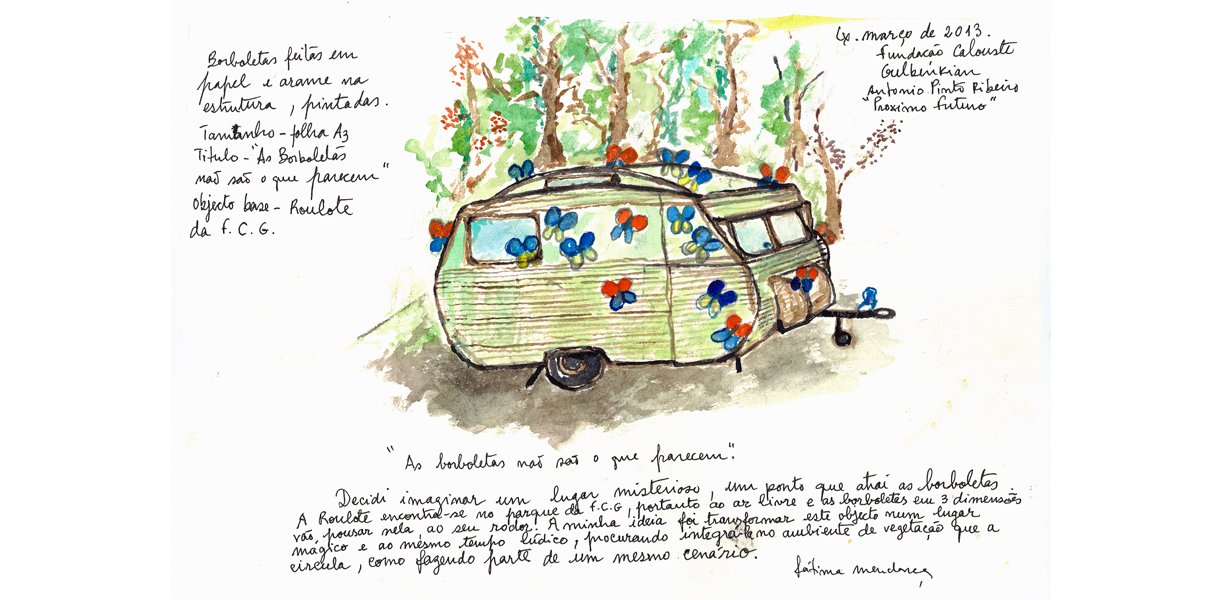 Borboletas feitas em
papel e arame na
estrutura, pintadas.
Tamanho - folha A3
Titulo - "As Borboletas
não são o que parecem"
Objecto base - Roulote
da F. C. G.
Lx. março de 2013.
Fundação Calouste
Gulbenkian
Antonio Pinto Ribeiro
"Proximo futuro"
"As borboletas não são o que parecem".
Decidi imaginar um lugar misterioso, um ponto que atrai as borboletas.
A Roulote encontra-se no parque da F.C.G, portanto ao ar livre e as borboletas em 3 dimensões
vão, pousar nela, ao seu redor. A minha ideia foi transformar este objecto num lugar
magico e ao mesmo tempo lúdico, procurando integra-lo no ambiente de vegetação que a
circula, como fazendo parte de um mesmo cenário.
fátima mendonça